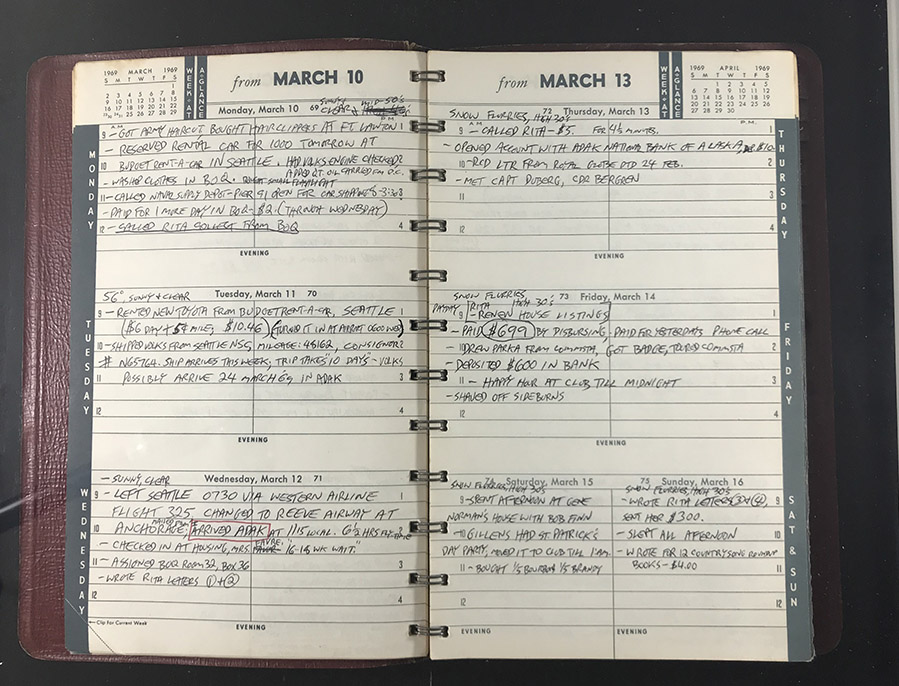 1969 MARCH 1969
S M T W T F S
1
2 3 4 5 6 7 8
9 10 11 12 13 14 15
WEEK-AT
A-GLANCE
from MARCH 10
Monday, March 10 69 SUNNY MID-50'S
CLEAR
A.M. P.M.
MONDAY
9 - GOT ARMY HAIRCUT, BOUGHT HAIR CLIPPERS AT FT. LAWTON 1
- RESERVED RENTAL CAR FOR 1000 TOMORROW AT
10 BUDGET RENT-A-CAR IN SEATTLE. HAD VOLKS ENGINE CHECKED 2
ADDED QT. OIL CARRIED EM O.C.
- WASHED CLOTHES IN BOQ. SMALL FLASHLIGHT
11 - CALLED NAVAL SUPPLY DEPOT - PIER 91 OPEN FOR CAR SHIPPING 3
- PAID FOR 1 MORE DAY IN BOQ - $2. (THROUGH WEDNESDAY)
12 - CALLED RITA COLLECT FROM BOQ 4
EVENING
56°, SUNNY & CLEAR Tuesday, March 11 70
TUESDAY
9 - RENTED NEW TOYOTA FROM BUDGET RENT-A-CAR, SEATTLE 1
($6 DAY + $¢ MILE, $10.46) (TURNED IT IN AT AIRPORT 0600 WED)
10 - SHIPPED VOLKS FROM SEATTLE NSC, MILEAGE: 45162, CONSIGNMENT 2
# N65764. SHIP ARRIVES THIS WEEK, TRIP TAKES "10 DAYS" - VOLKS
11 POSSIBLY ARRIVE 24 MARCH 69 IN ADAK 3
12 4
EVENING
- SUNNY, CLEAR Wednesday, March 12 71
WEDNESDAY
9 - LEFT SEATTLE 0730 VIA WESTERN AIRLINE 1
FLIGHT 325 CHANGED TO REEVE AIRWAY AT
10 ANCHORAGE; ARRIVED ADAK AT 1115 LOCAL. 6½ HRS FLT TIME 2
- CHECKED IN AT HOUSING, MRS. "16-18 WK WAIT."
11 - ASSIGNED BOQ ROOM 32, BOX 36 3
- WROTE RITA LETERS ① + ②
12 4
Clip For Current Week
EVENING
from MARCH 13
WEEK-AT
A-GLANCE
1969 APRIL 1969
S M T W T F S
1 2 3 4 5
6 7 8 9 10 11 12
13 14 15 16 17 18 19
20 21 22 23 24 25 26
27 28 29 30
SNOW FLURRIES, HIGH 30'S 72 Thursday, March 13
A.M. P.M.
THURSDAY
9 - CALLED RITA - $5 FOR 4½ MINUTES. 1
- OPENED ACCOUNT WITH ADAK NATIONAL BANK OF ALASKA, $10
10 - RCD LTR FROM ROYAL GLOBE DTD 24 FEB. 2
- MET CAPT DUBERG, CDR BERGREN
11 3
12 4
EVENING
SNOW FLURRIES, HIGH 30'S 73 Friday, March 14
FRIDAY
PAYDAY 9 RITA - RENEW HOUSE LISTINGS 1
- PAID $699 BY DISBURSING, PAID FOR YESTERDAYS PHONE CALL
10 - DREW PARKA FROM COMMSTA, GOT BADGE, TOURED COMMSTA 2
- DEPOSITED $600 IN BANK
11 - HAPPY HOUR AT CLUB TILL MIDNIGHT 3
- SHAVED OFF SIDEBURNS
12 4
EVENING
SNOW FLURRIES, HIGH 30'S 74 Saturday, March 15
9 - SPENT AFTERNOON AT GENE
NORMAN'S HOUSE WITH BOB FINN
10 - GILLENS HAD ST. PATRICK'S
DAY PARTY, MOVED IT TO CLUB TILL 1 AM.
11 - BOUGHT 1/5 BOURBON 1/5 BRANDY
12
EVENING
75 Sunday, March 16
SNOW FLURRIES, HIGH 30'S
- WROTE RITA LETTERS ③ + ④, 9
SENT HER $300.
- SLEPT ALL AFTERNOON 10
- WROTE FOR 12 COUNTRY SONG ROUNDUP
BOOKS - $4.00 11
12
EVENING
SAT & SUN